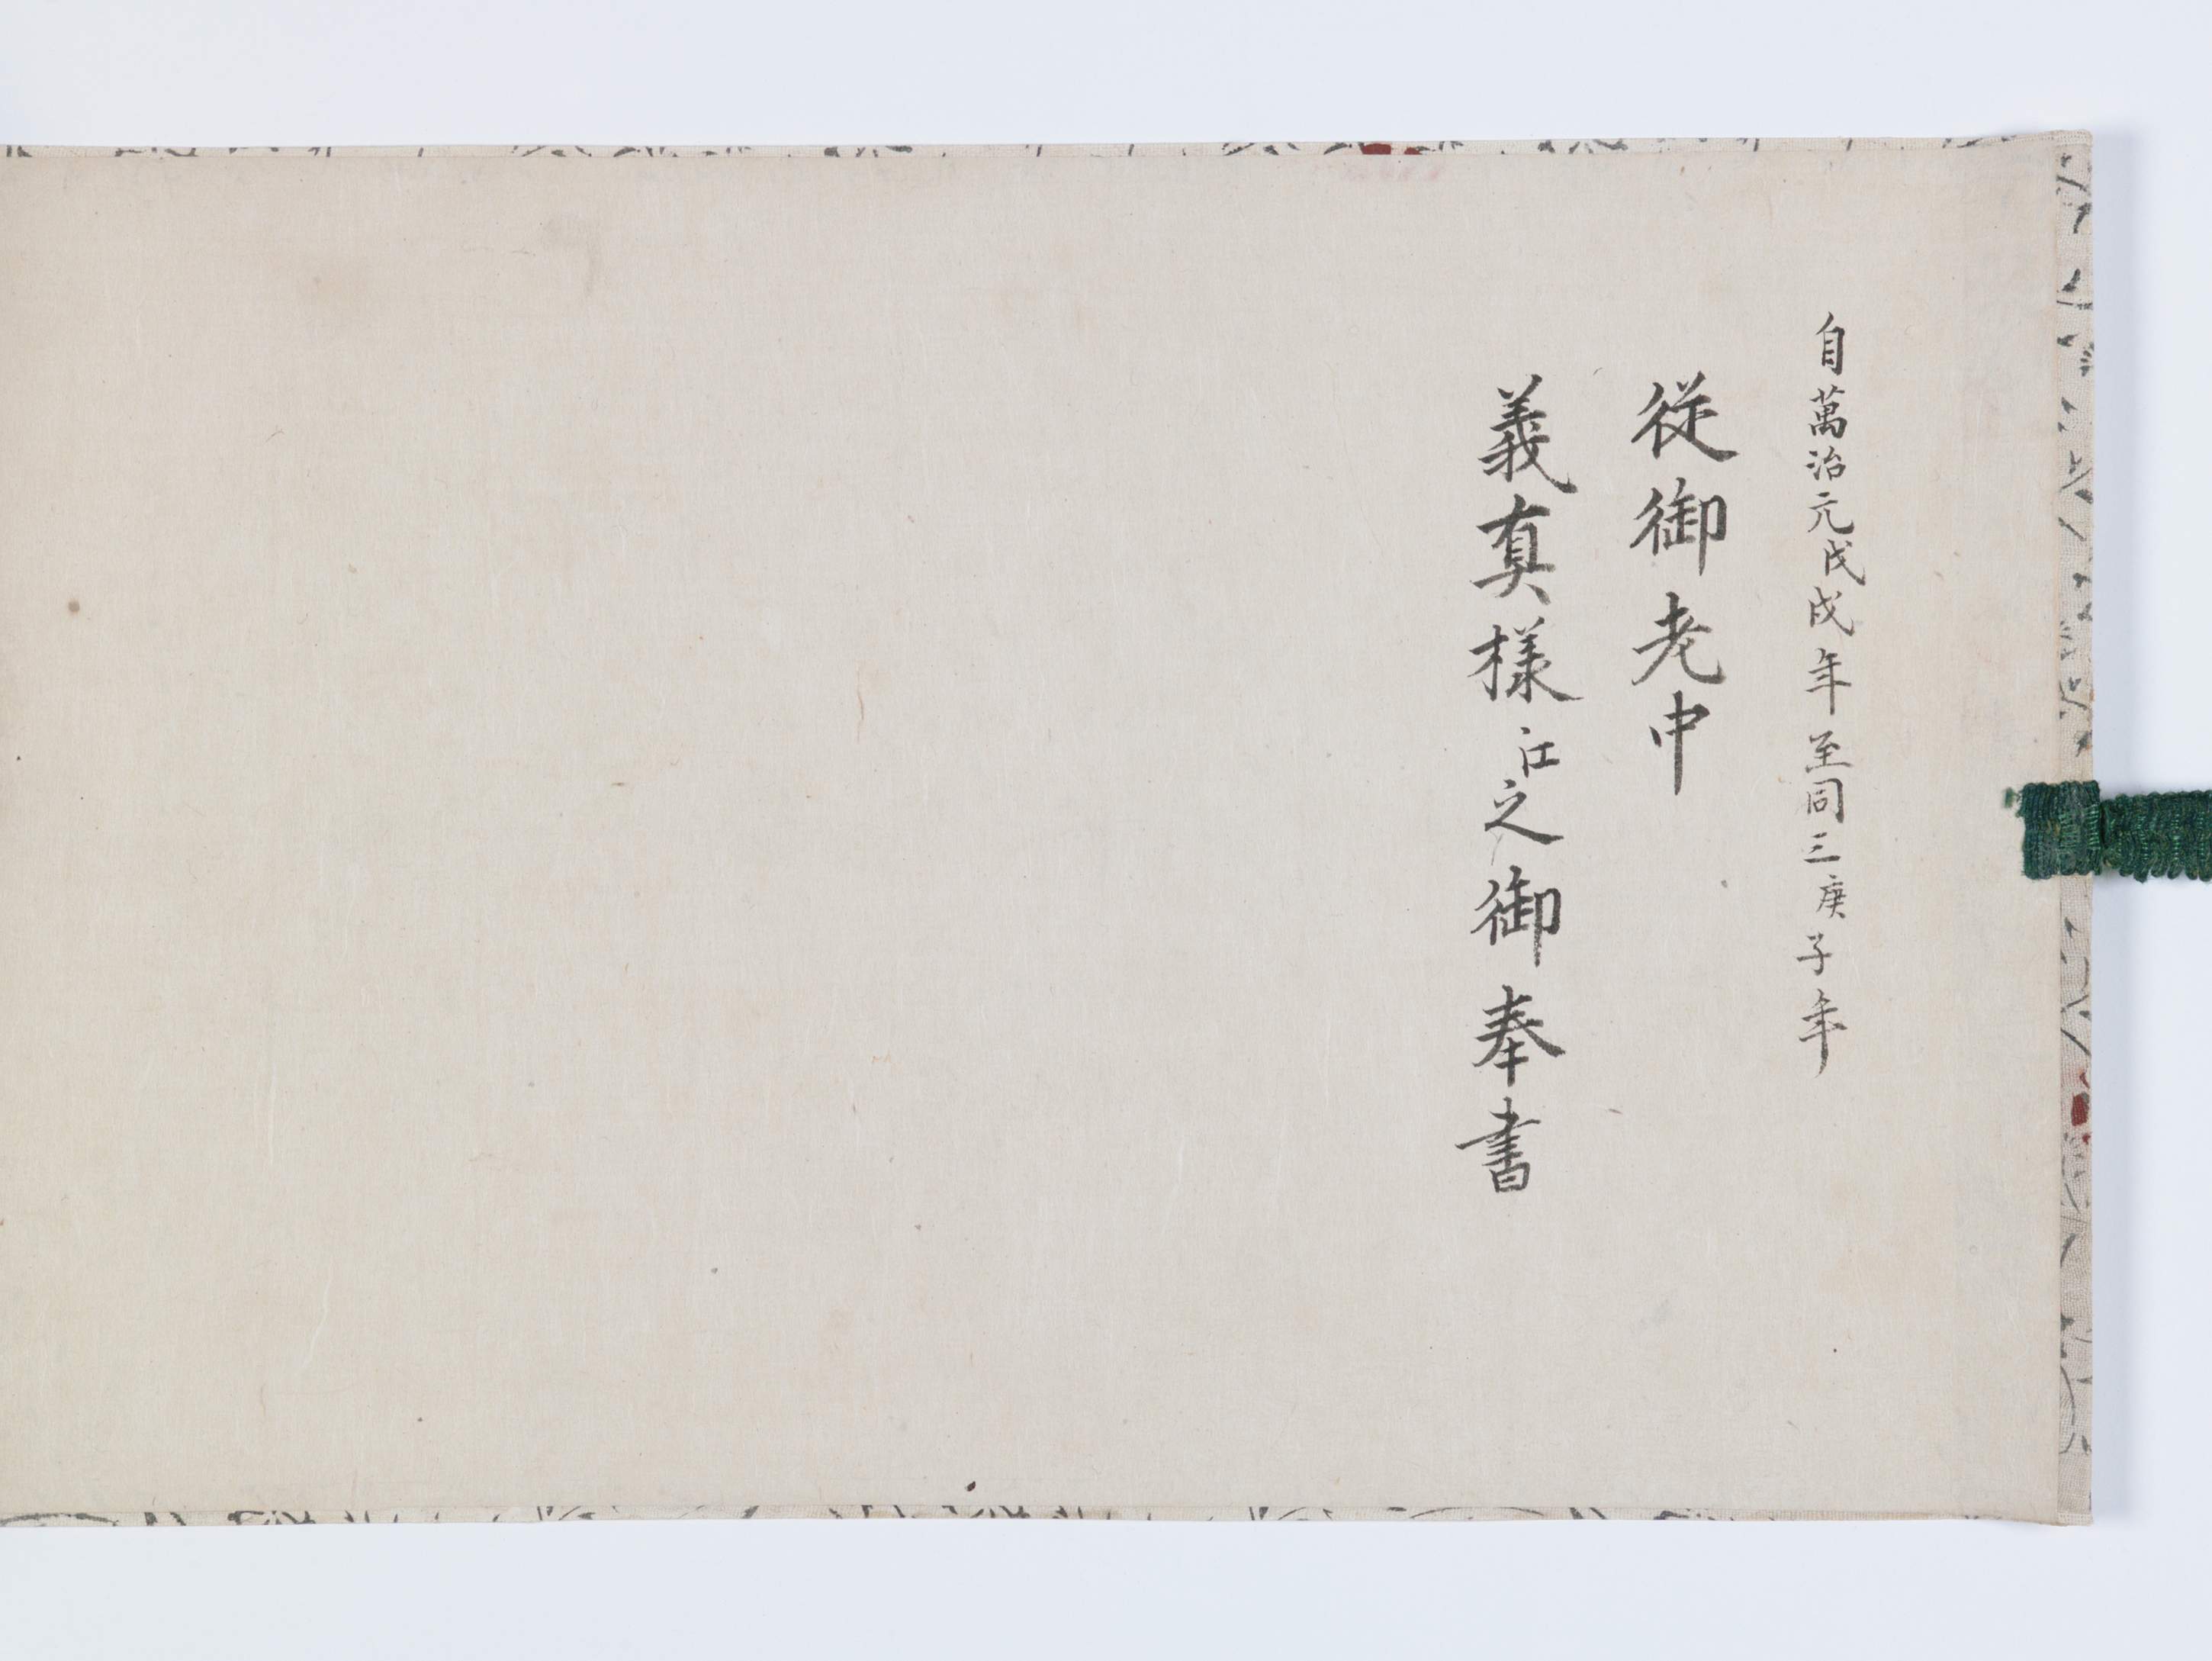 自萬治元戊戌年至同三庚子年
従御老中
義真様江之御奉書